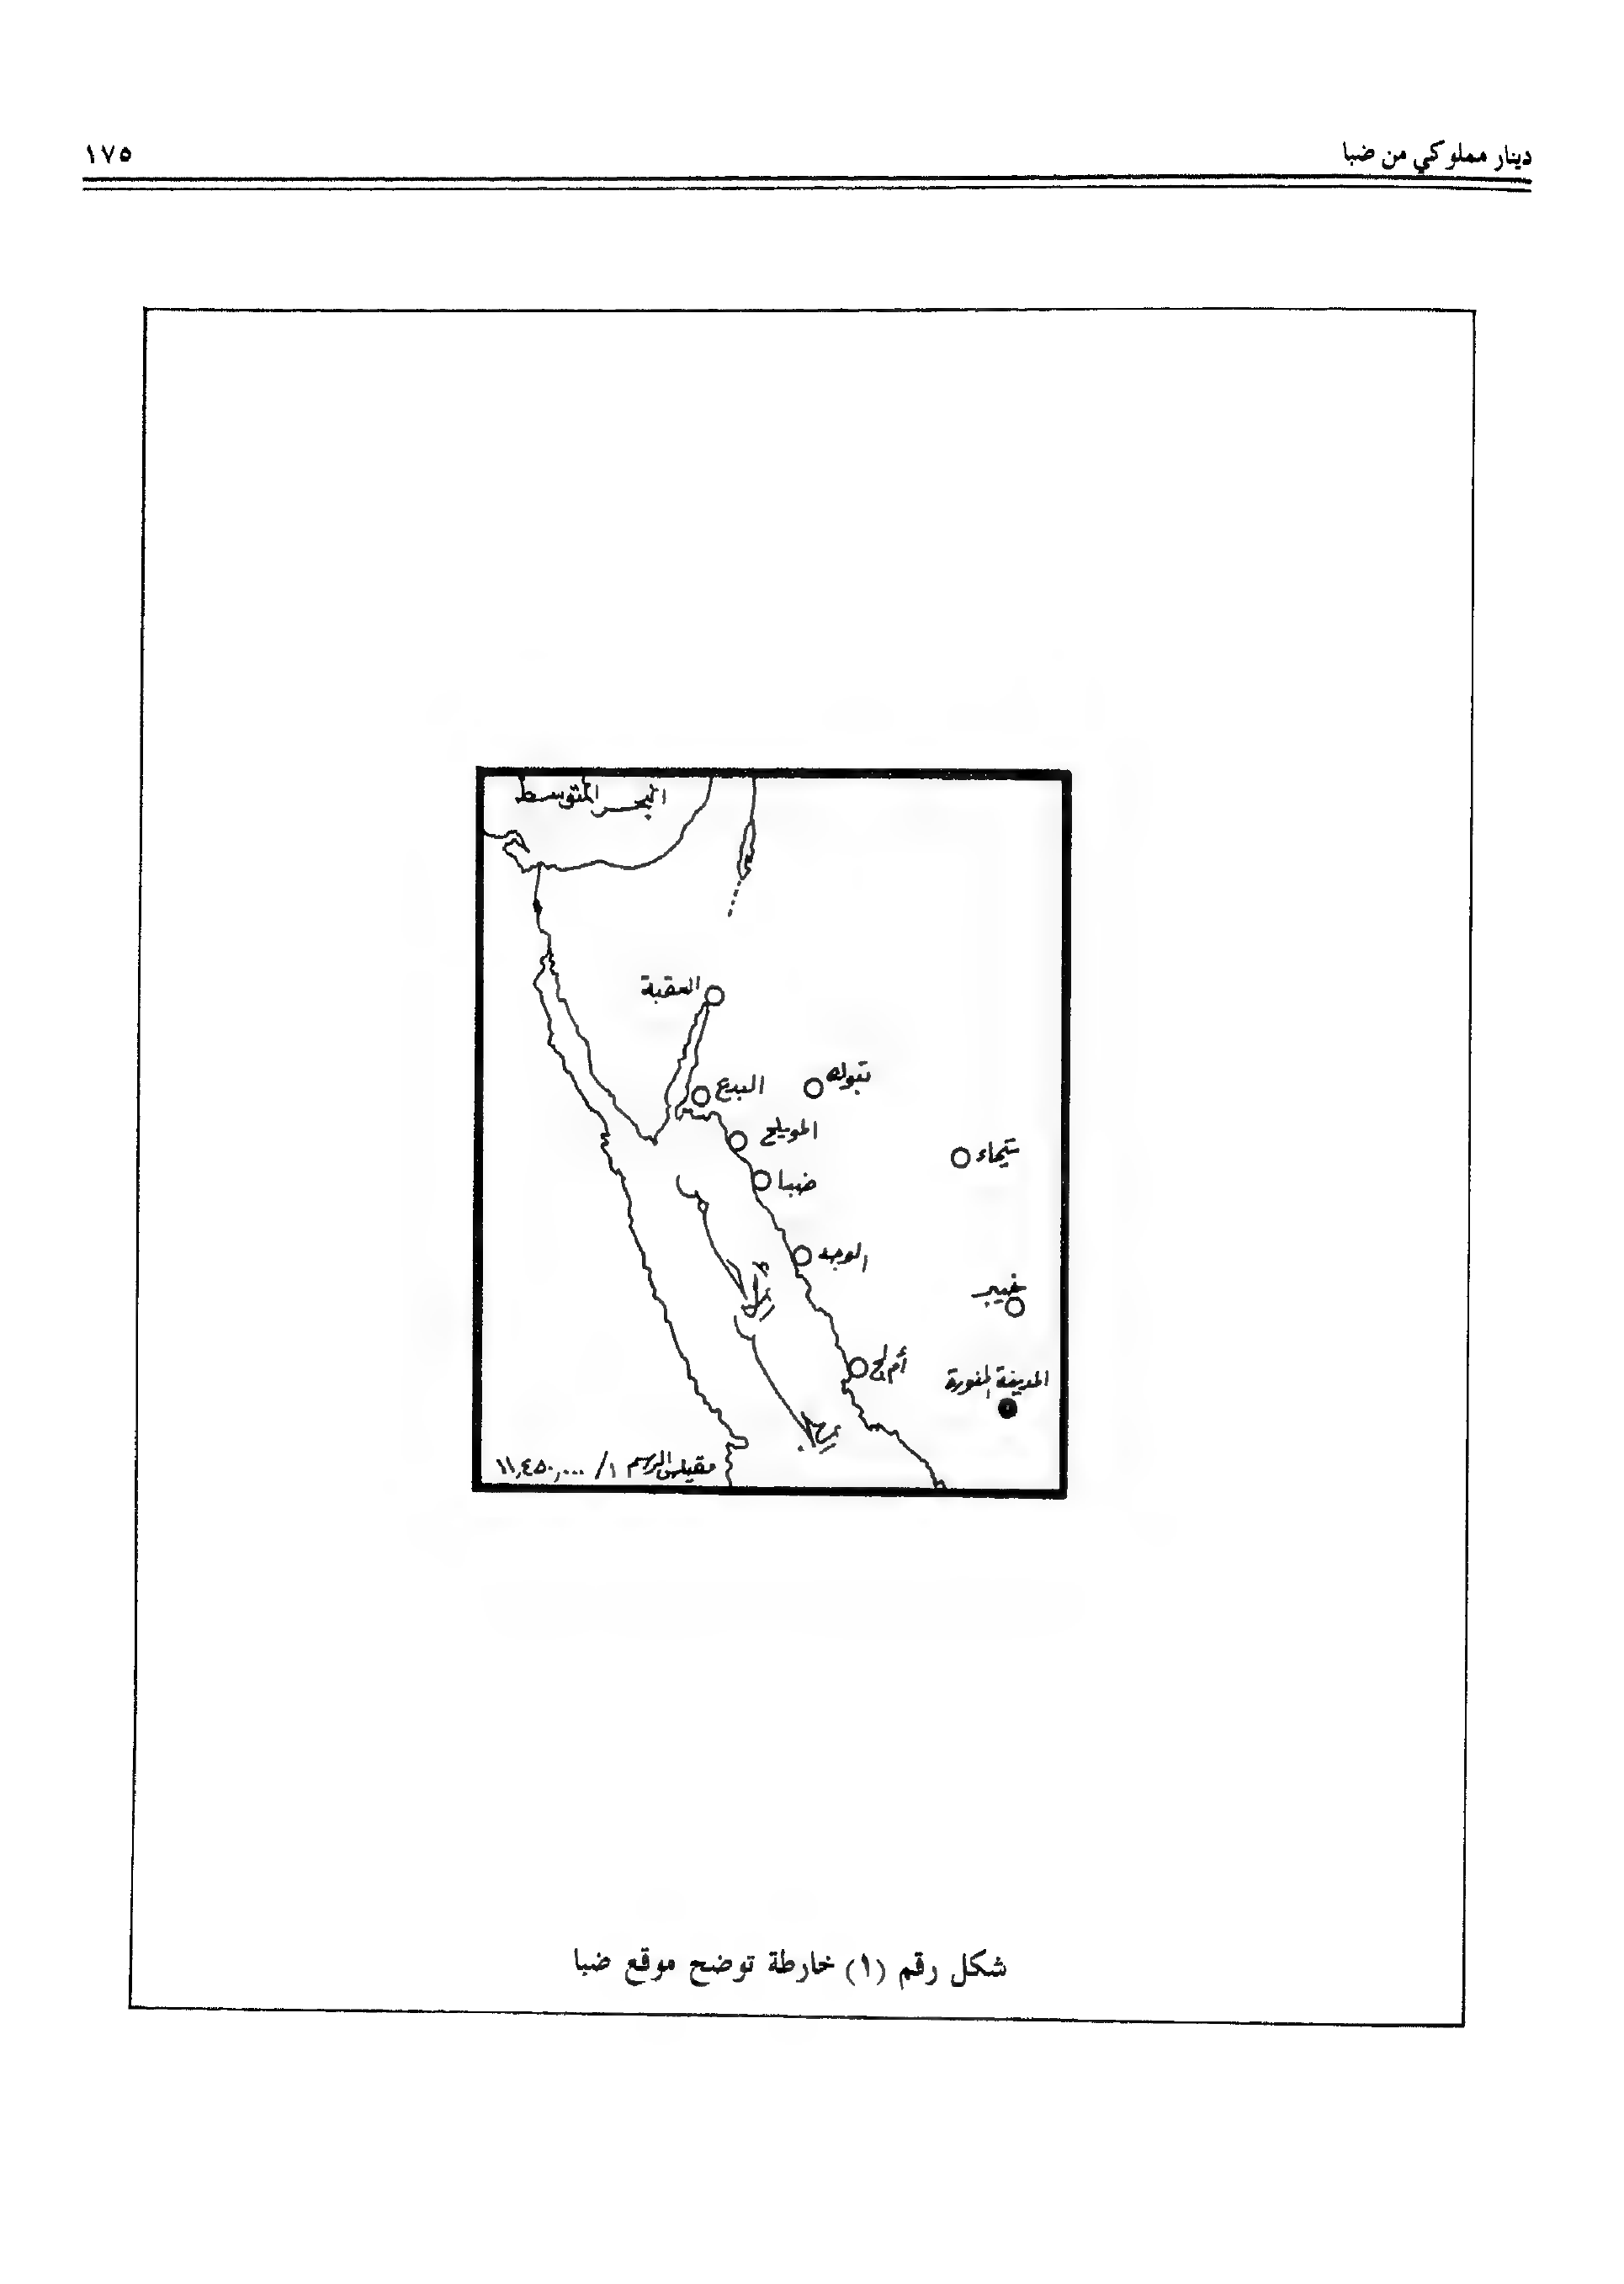 دينار مملوكي من ضبا
١٧٥
البحر المتوسط
العقبة
البدع
تبوك
المويلح
تيماء
ضبا
الوجه
خيبر
البحر الأحمر
أملج
المدينة المنورة
مقياس الرسم ١/ ١١,٤٥٠,٠٠٠
شكل رقم (١) خارطة توضح موقع ضبا